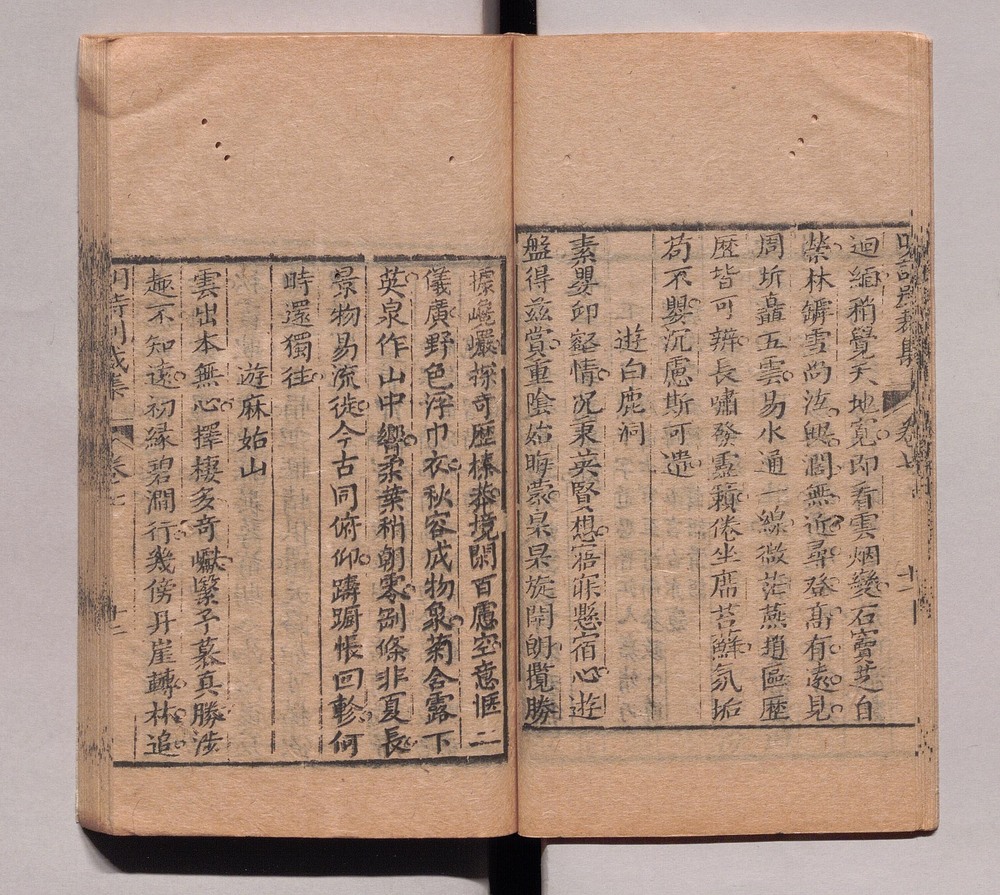 卷七
迴緬稍覺天地寬即看雲烟變石竇自
縈林罅雪尚泫濶無近尋登高有遠見
周圻矗五雲易水通一線微茫燕趙區歷
歷皆可辨長嘯發靈籟倦坐席苔蘚氛垢
苟不嬰沉慮斯可遣
遊白鹿洞
素嬰邱壑情况秉英賢想寤寐懸宿心遊
盤得茲賞重陰始晦蒙杲杲旋開朗攬勝
據巉巖探奇歷榛莽境閑百慮空意愜二
儀廣野色浮巾衣秋容成物象菊含露下
英泉作山中響柔葉稍朝零勁條非夏長
景物易流徙今古同俯仰躊躕悵回軫何
時還獨往
遊麻姑山
雲出本無心擇棲多奇巘繄予慕真勝涉
趣不知遠初緣碧澗行幾傍丹崖轉林追
明詩別裁集 卷七 十二